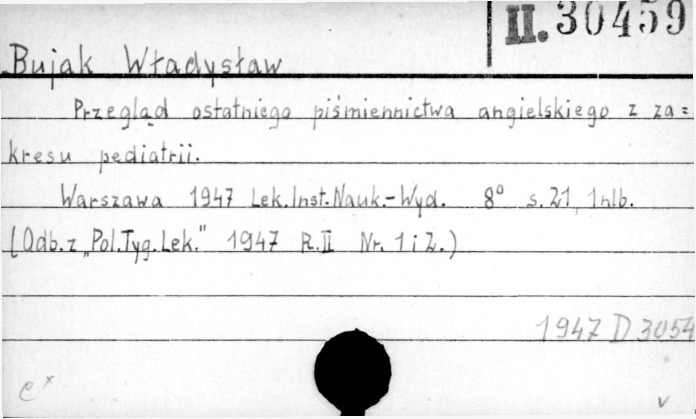 II. 30459
Bujak Władysław
Przegląd ostatniego piśmiennictwa angielskiego z za=
kresu pediatrii.
Warszawa 1947 Lek. Inst. Nauk.-Wyd. 8° s. 21, 1 nlb.
(Odb. z „Pol. Tyg. Lek." 1947 R. II Nr. 1 i 2.)
1947 D 3054
e x
v